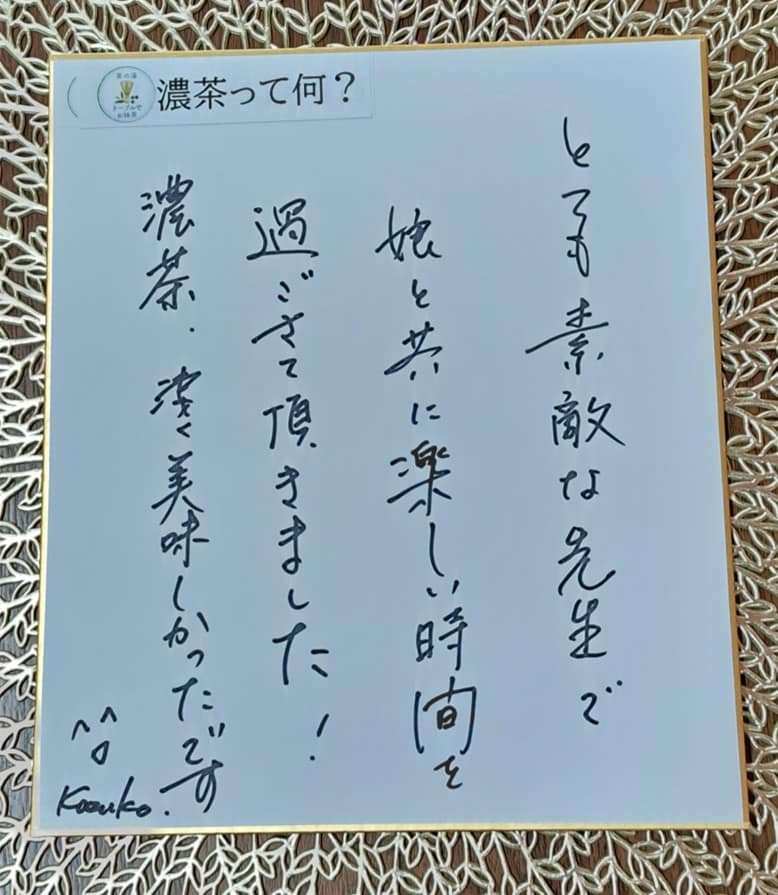 茶の湯
テーブルで
お抹茶
濃茶って何？
とても素敵な先生で
娘と共に楽しい時間を
過ごさて頂きました！
濃茶、凄く美味しかったです
Kazuko.